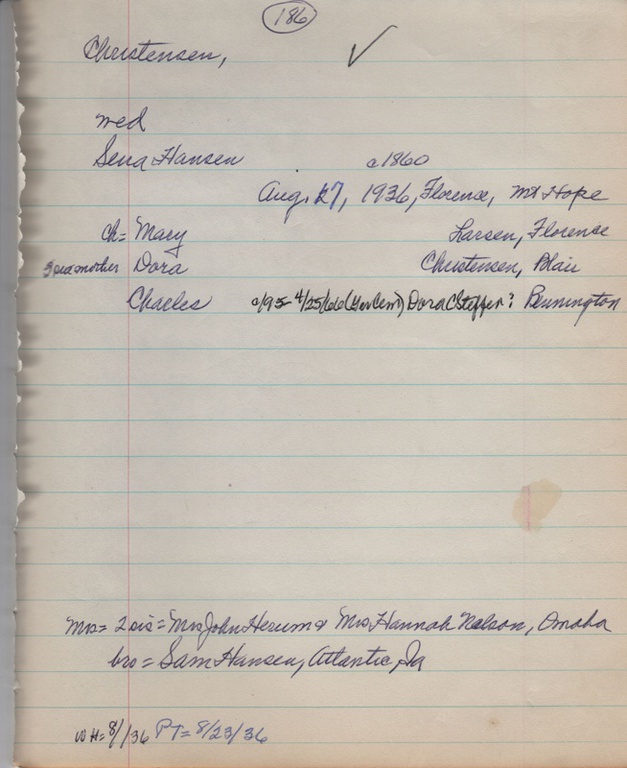 186
Christensen,
wed
Sena Hansen c1860
Aug. 27, 1936, Florence, Mt Hope
ch= Mary Larsen, Florence
Dora Christensen, Blair
Charles c/95- 4/25/66 Dora C Steffen: Bennington
Mrs= 2 sis= Mrs John Herum & Mrs Hannah Nelson, Omaha
bro= Sam Hansen, Atlantic, Ia
WH= 8/ /36 PT= 8/23/36